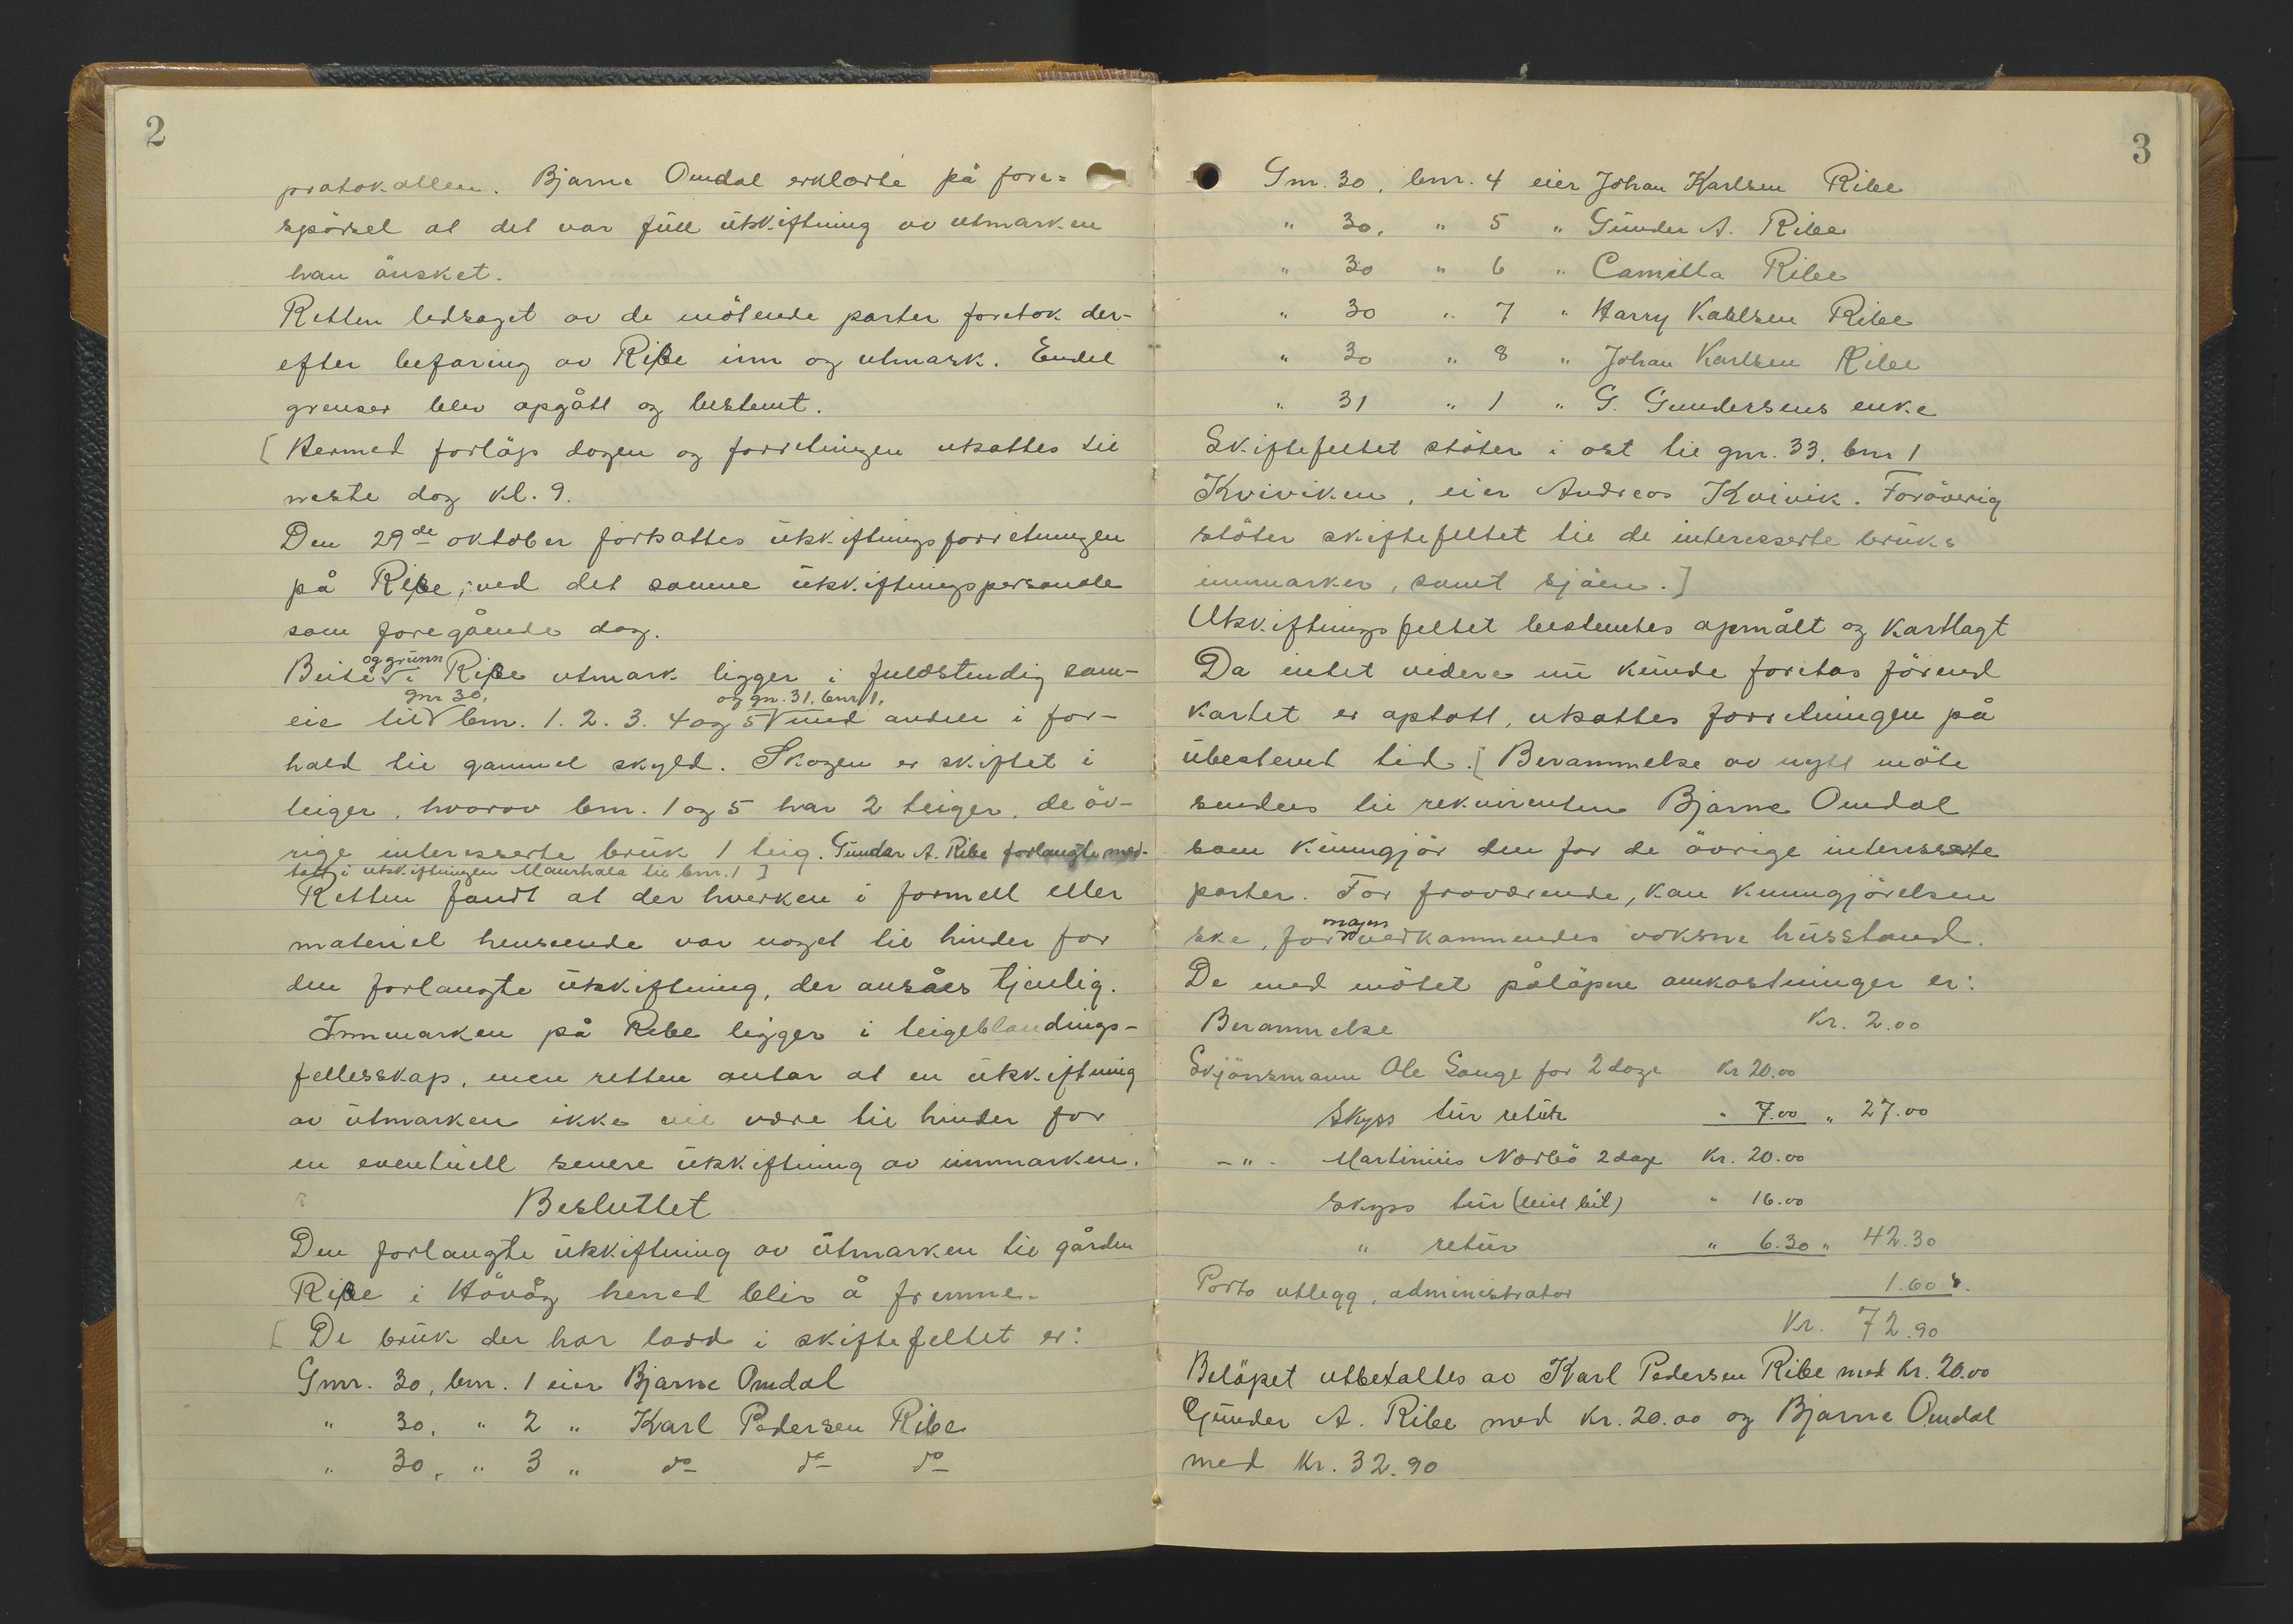 2
protokollen. Bjarne Omdal erklærte på fore=
spörsel at det var full utskiftning av utmarken
han önsket.
Retten ledsaget av de mötende parter foretok der-
efter befaring av Ribe inn og utmark. Endel
grenser blev opgått og bestemt.
[ Hermed forløp dagen og forretningen utsattes til
neste dag kl. 9.
Den 29de oktober fortsattes utskiftningsforretningen
på Ribe, ved det samme utskiftningspersonale
som foregående dag.
og grunn
Beite i Ribe utmark ligger i fuldstendig sam-
gnr 30, og gn. 31, bnr 1,
eie til bnr. 1. 2. 3. 4 og 5 med andeler i for-
hold til gammel skyld. Skogen er skiftet i
teiger, hvorav bnr. 1 og 5 har 2 teiger, de öv-
rige interesserte bruk 1 teig. Gunder A. Ribe forlangte med-
tatt i utskiftningen Maurhala til bnr. 1 ]
Retten fandt at der hverken i formell eller
materiel henseende var noget til hinder for
den forlangte utskiftning, der ansåes tjenlig.
Innmarken på Ribe ligger i teigeblandings-
fellesskap, men retten antar at en utskiftning
av utmarken ikke vil være til hinder for
en eventuell senere utskiftning av innmarken.
Besluttet
Den forlangte utskiftning av utmarken til gården
Ribe i Hövåg herred blir å fremme.
[ De bruk der har lodd i skiftefeltet er:
Gnr. 30, bnr. 1 eier Bjarne Omdal
" 30, " 2 " Karl Pedersen Ribe
" 30, " 3 " do do do
3
Gnr. 30, bnr. 4 eier Johan Karlsen Ribe
" 30, " 5 " Gunder A. Ribe
" 30 " 6 " Camilla Ribe
" 30 " 7 " Harry Kahlsen Ribe
" 30 " 8 " Johan Karlsen Ribe
" 31 " 1 " G. Gundersens enke
Skiftefeltet stöter i ost til gnr. 33, bnr 1
Kviviken, eier Andreas Kvivik. Foröverig
stöter skiftefeltet til de interesserte bruks
innmarker, samt sjöen.]
Utskiftningsfeltet bestemtes opmålt og kartlagt
Da intet videre nu kunde foretas förend
kartet er optatt, utsattes forretningen på
ubestemt tid. [ Berammelse av nytt möte
sendes til rekvirenten Bjarne Omdal
som kunngjör den for de övrige interesserte
parter. For fraværende, kan kunngjörelsen
ske, for vedkommendes voksne husstand.
De med mötet påløpne omkostninger er:
Berammelse Kr. 2.00
Skjönsmann Ole Sange for 2 dage Kr 20.00
Skyss tur retur " 7.00 " 27.00
- " - Martinius Nærbö 2 dage Kr. 20.00
Skyss tur (leiet bil) " 16.00
" retur " 6.30 " 42.30
Porto utlegg, administrator 1.60
Kr. 72.90
Belöpet utbetaltes av Karl Pedersen Ribe med kr. 20.00
Gunder A. Ribe med kr. 20.00 og Bjarne Omdal
med kr. 32.90